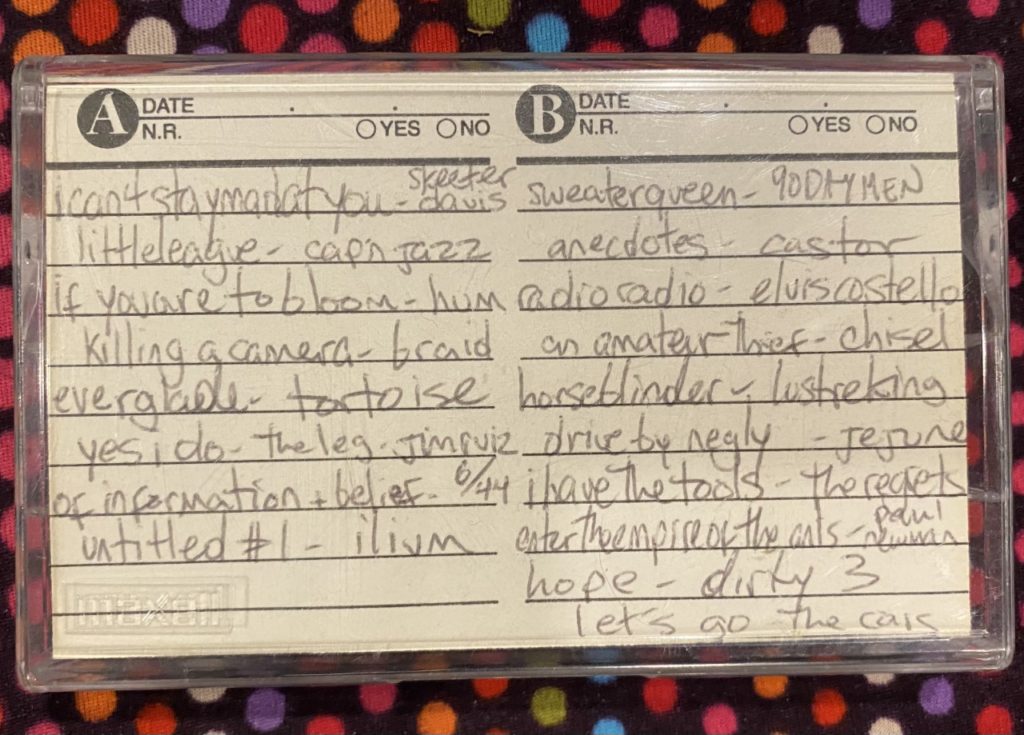 A DATE . .
N.R. YES NO
icantstaymadatyou - skeeter davis
littleleague - cap'n jazz
if youare to bloom - hum
killing a camera - braid
everglade - tortoise
yes i do - the leg. jim ruiz
of information + belief - 6/44
untitled #1 - ilium
maxell
B DATE . .
N.R. YES NO
sweaterqueen - 90DAYMEN
anecdotes - castor
radioradio - elviscostello
an amateur thief - chisel
horseblinder - lustreking
drive by negly - jejune
i have the tools - the regrets
enter the empire of the ants - paul newman
hope - dirty 3
let's go the cars